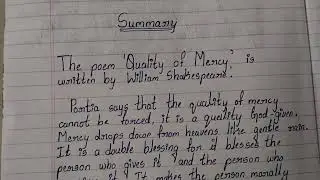 Summary
The poem 'Quality of Mercy' is
written by William Shakespeare.
Portia says that the quality of mercy
cannot be forced, it is a quality God-given.
Mercy drops down from heavens like gentle rain.
It is a double blessing for it blesses the
person who gives it and the person who
it. It makes the person morally